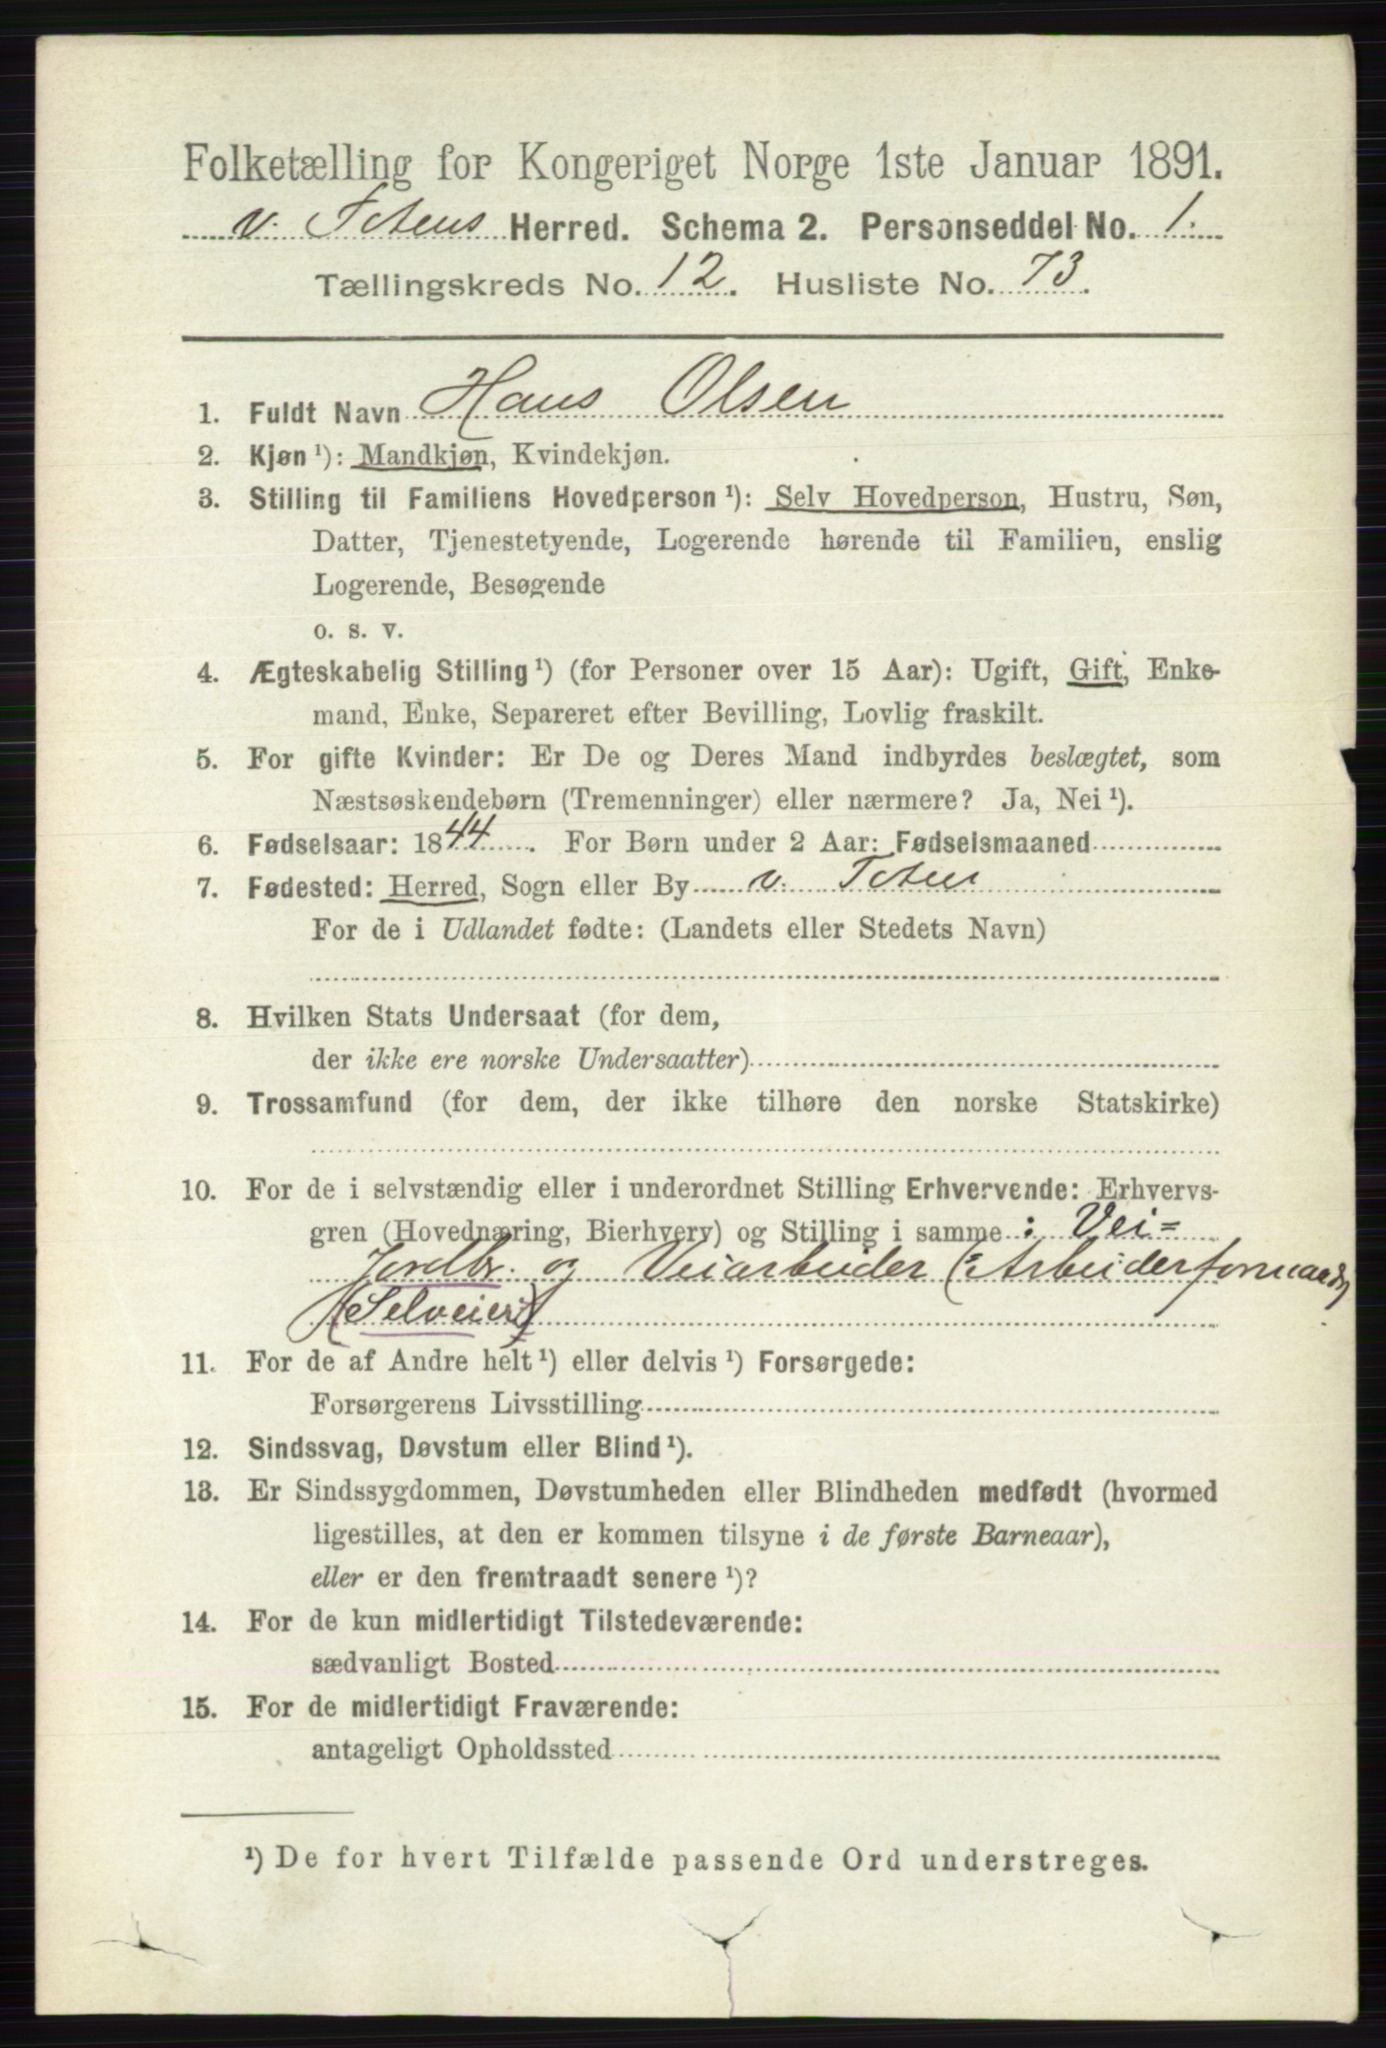 Folketælling for Kongeriget Norge 1ste Januar 1891.
v. Totens Herred. Schema 2. Personseddel No. 1.
Tællingskreds No. 12. Husliste No. 73.
1. Fuldt Navn Hans Olsen
2. Kjøn ¹): Mandkjøn, Kvindekjøn.
3. Stilling til Familiens Hovedperson ¹): Selv Hovedperson, Hustru, Søn,
Datter, Tjenestetyende, Logerende hørende til Familien, enslig
Logerende, Besøgende
o. s. v.
4. Ægteskabelig Stilling ¹) (for Personer over 15 Aar): Ugift, Gift, Enke-
mand, Enke, Separeret efter Bevilling, Lovlig fraskilt.
5. For gifte Kvinder: Er De og Deres Mand indbyrdes beslægtet, som
Næstsøskendebørn (Tremenninger) eller nærmere? Ja, Nei ¹).
6. Fødselsaar: 1844. For Børn under 2 Aar: Fødselsmaaned
7. Fødested: Herred, Sogn eller By v. Toten
For de i Udlandet fødte: (Landets eller Stedets Navn)
8. Hvilken Stats Undersaat (for dem,
der ikke ere norske Undersaatter)
9. Trossamfund (for dem, der ikke tilhøre den norske Statskirke)
10. For de i selvstændig eller i underordnet Stilling Erhvervende: Erhvervs-
gren (Hovednæring, Bierhverv) og Stilling i samme : Vei=
Jordbr. og Veiarbeider (=Arbeiderformand)
(Selveier)
11. For de af Andre helt ¹) eller delvis ¹) Forsørgede:
Forsørgerens Livsstilling
12. Sindssvag, Døvstum eller Blind ¹).
13. Er Sindssygdommen, Døvstumheden eller Blindheden medfødt (hvormed
ligestilles, at den er kommen tilsyne i de første Barneaar),
eller er den fremtraadt senere ¹)?
14. For de kun midlertidigt Tilstedeværende:
sædvanligt Bosted
15. For de midlertidigt Fraværende:
antageligt Opholdssted
¹) De for hvert Tilfælde passende Ord understreges.